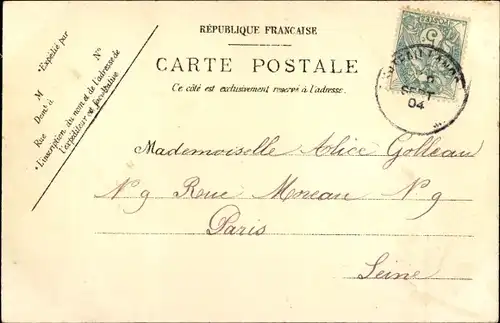 RÉPUBLIQUE FRANÇAISE
CARTE POSTALE
Ce côté est exclusivement réservé à l'adresse.
*Expédié par
M N°
Dem^t à
Rue
*L'inscription du nom et de l'adresse de
l'expéditeur est facultative
SEPT
04
Mademoiselle Alice Golleau
N 9 Rue Moreau N 9
Paris
Seine